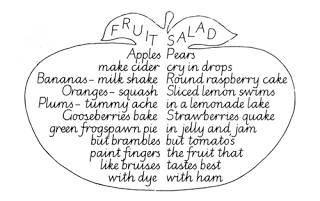 FRUIT SALAD
Apples Pears
make cider cry in drops
Bananas - milk shake Round raspberry cake
Oranges - squash Sliced lemon swims
Plums - tummy ache in a lemonade lake
Gooseberries bake Strawberries quake
green frogspawn pie in jelly and jam
but brambles but tomatos
paint fingers the fruit that
like bruises tastes best
with dye with ham